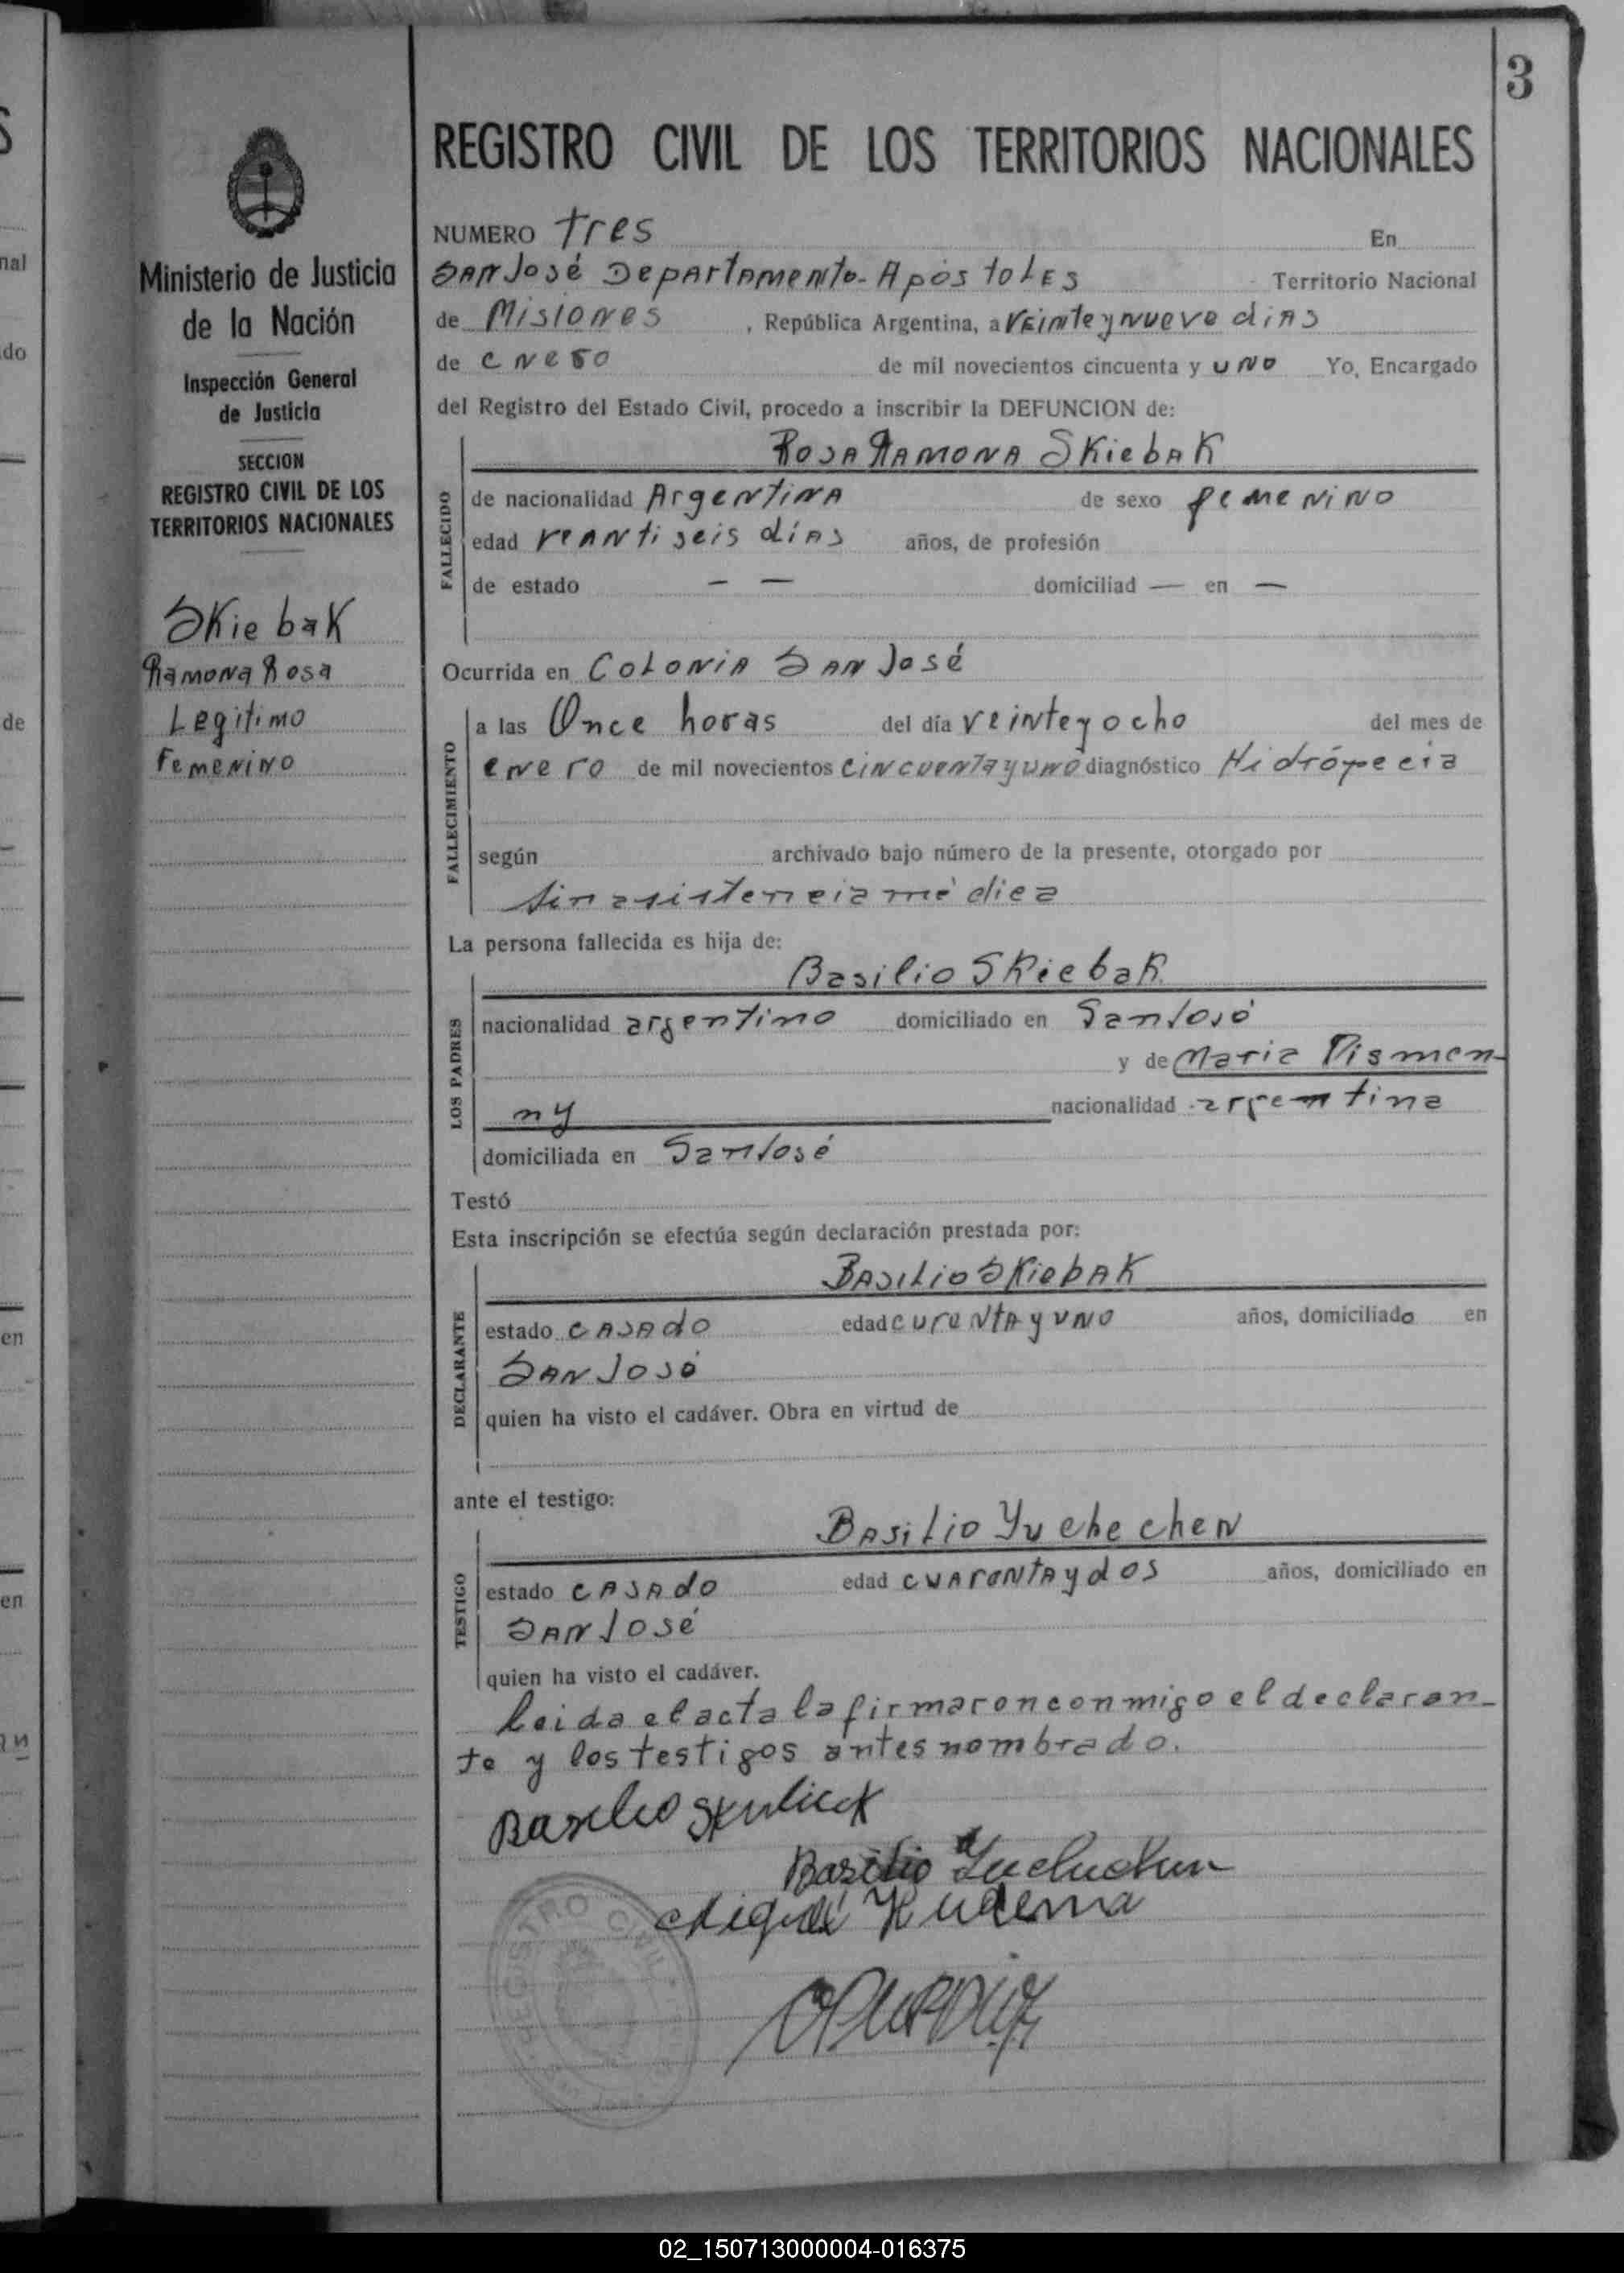 3
REGISTRO CIVIL DE LOS TERRITORIOS NACIONALES
Ministerio de Justicia
de la Nación
Inspección General
de Justicia
SECCION
REGISTRO CIVIL DE LOS
TERRITORIOS NACIONALES
SKiebaK
Ramona Rosa
Legitimo
Femenino
NUMERO tres En
San José Departamento-Apóstoles Territorio Nacional
de Misiones, República Argentina, a veinte y nueve dias
de enero de mil novecientos cincuenta y uno Yo, Encargado
del Registro del Estado Civil, procedo a inscribir la DEFUNCION de:
Rosa Ramona SKiebaK
FALLECIDO
de nacionalidad Argentina de sexo femenino
edad veantiseis días años, de profesión
de estado — — domiciliad — en —
Ocurrida en Colonia San José
FALLECIMIENTO
a las Once horas del día veinteyocho del mes de
enero de mil novecientos cincuenta y uno diagnóstico Hidrópecia
según archivado bajo número de la presente, otorgado por
sin asistencia médica
La persona fallecida es hija de:
LOS PADRES
Basilio SKiebaK
nacionalidad argentino domiciliado en San José
y de Maria Dismen-
ny nacionalidad argentina
domiciliada en San José
Testó
Esta inscripción se efectúa según declaración prestada por:
DECLARANTE
Basilio SKiebaK
estado casado edad curenta y uno años, domiciliado en
San José
quien ha visto el cadáver. Obra en virtud de
ante el testigo:
TESTIGO
Basilio Yuchechen
estado casado edad cuarenta y dos años, domiciliado en
San José
quien ha visto el cadáver.
leida el acta la firmaron conmigo el declaran-
te y los testigos antes nombrado.
Basilio
Basilio Yuchechen
REGISTRO CIVIL
02_150713000004-016375